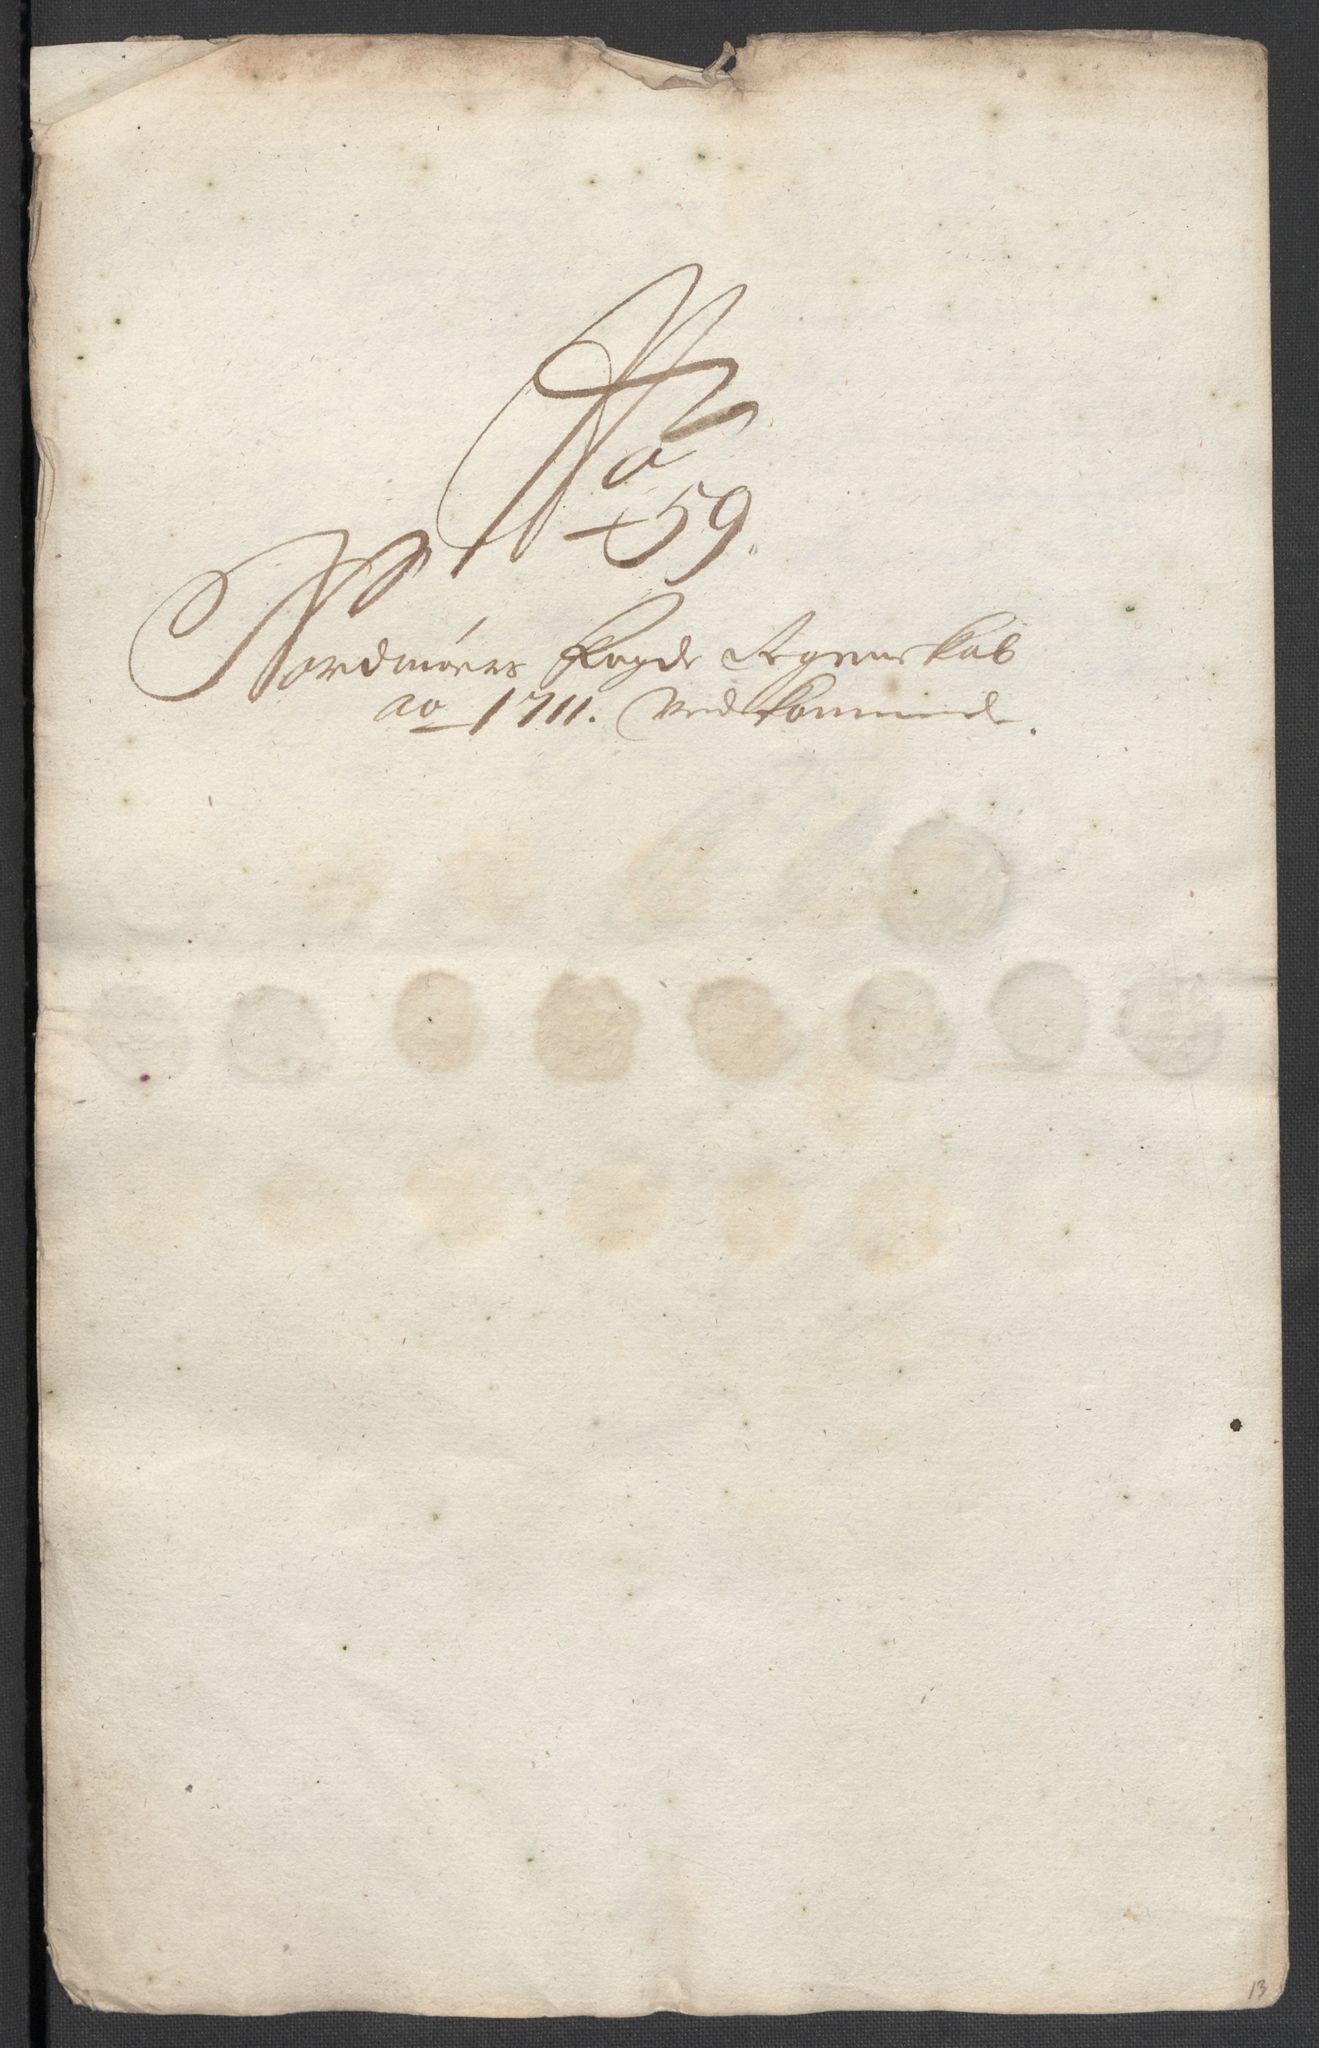 No
59.
Nordmøers Fogde Regenskab
ao 1711. Vedkommende.
13